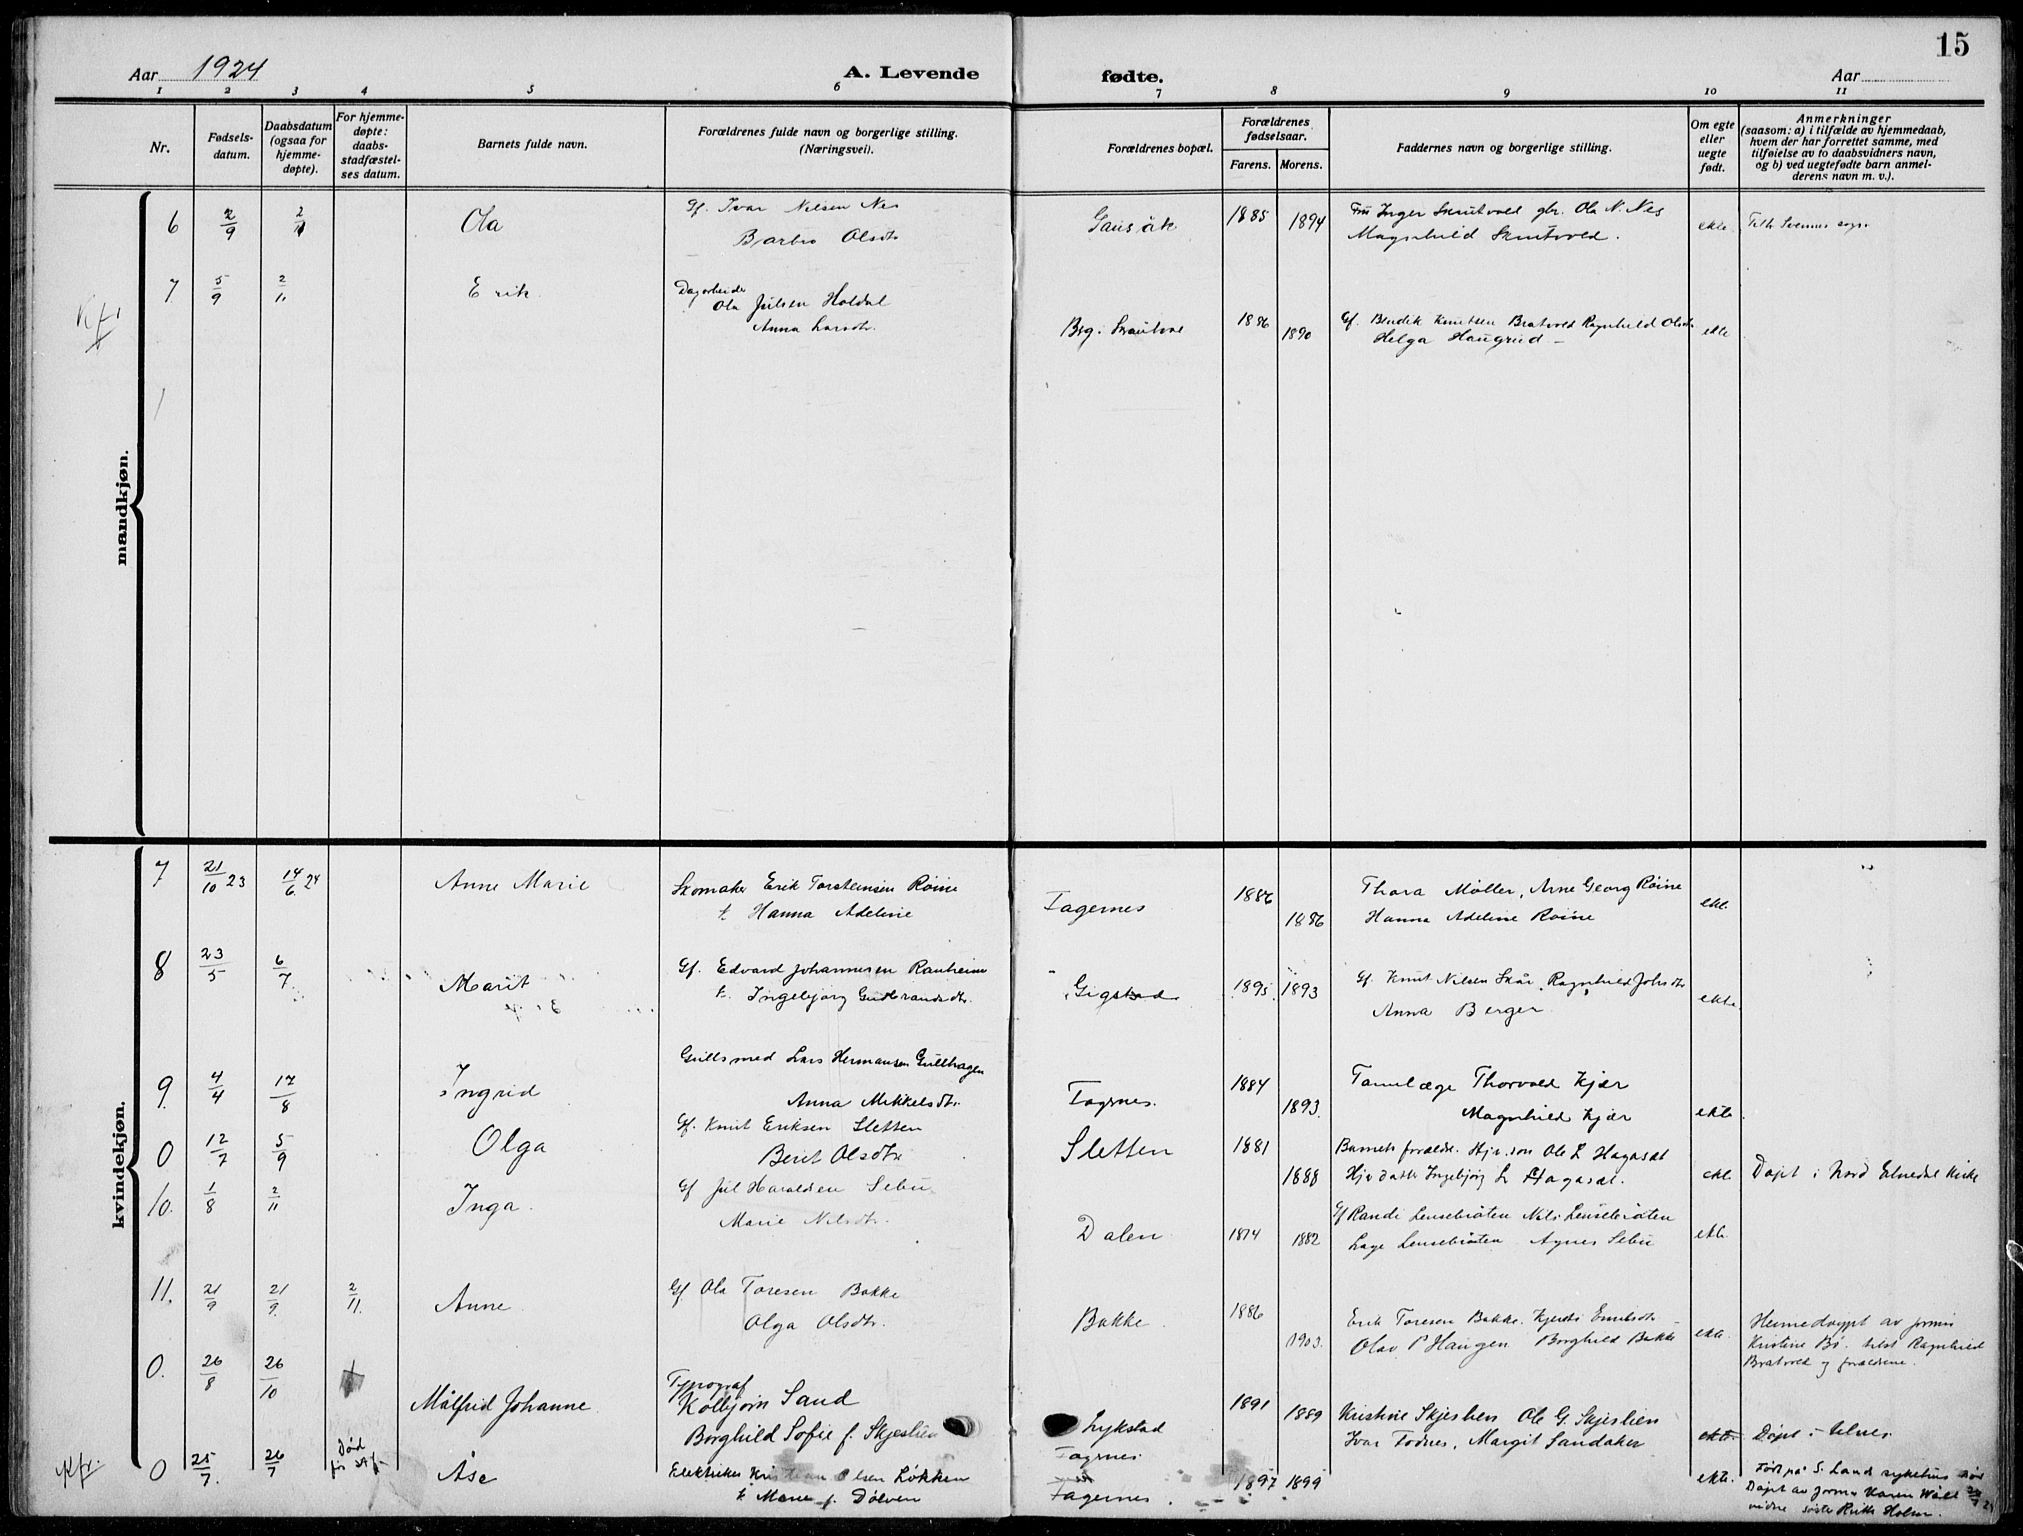 15
Aar 1924
A. Levende fødte.
Aar
1 2 3 4 5 6 7 8 9 10 11
Nr.
Fødsels-
datum.
Daabsdatum
(ogsaa for
hjemme-
døpte).
For hjemme-
døpte:
daabs-
stadfæstel-
ses datum.
Barnets fulde navn.
Forældrenes fulde navn og borgerlige stilling.
(Næringsvei).
Forældrenes bopæl.
Forældrenes
fødselsaar.
Farens. Morens.
Faddernes navn og borgerlige stilling.
Om egte
eller
uegte
født.
Anmerkninger
(saasom: a) i tilfælde av hjemmedaab,
hvem der har forrettet samme, med
tilføielse av to daabsvidners navn,
og b) ved uegtefødte barn anmel-
derens navn m. v.).
mandkjøn.
6 2/9 2/11 Ola
Gf. Ivar Nilsen Nes
Barbro Olsdtr
1885 1894
Inger Skrutvold gbr. Ola N. Nes
Magnhild Skrutvold.
ekte.
7 5/9 2/11 Erik
Dagarbeider
Ola Julsen Holdal
Anna Larsdtr.
1886 1890
Gf. Bendik Knutsen Bratvold Ragnhild Olsdtr
Helga Haugrud
ekte
kvindekjøn.
7 21/10 23 14/6 24 Anne Marie
Skomaker Erik Torsteinsen Røine
k Hanna Adeline
Fagernes
1886 1886
Thora Møller, Arne Georg Røine
Hanna Adeline Røine
ekte.
8 23/5 6/7 Marit
Gf. Edvard Johannesen Ranheim
k. Ingebjørg Gudbrandsdtr.
Gigstad
1895. 1893
Gf. Knut Nilsen Skår, Ragnhild Johsdtr
Anna Berger
ekte.
9. 4/4 17/8 Ingrid
Gullsmed Lars Hermansen Gullhagen
Anna Mikkelsdtr.
Fagernes.
1884 1893.
Tannlæge Thorvald Kjær
Magnhild Kjær
ekte.
0 12/7 5/9 Olga
Gf. Knut Eriksen Sletten
Berit Olsdtr
Sletten
1881 1888
Barnets forældre. Hjv. søn Ole L Hagasæt
Hjv datter Ingebjørg L Hagasæt.
ekte.
Døpt i Nord Etnedal kirke
10. 1/8 2/11 Inga.
Gf Jul Haraldsen Sebu
Marie Nilsdtr.
Dalen
1874 1882
Gf Randi Lensebråten Nils Lensebråten
Lage Lensebråten Agnes Sebu
ekte.
11. 21/9 21/9. 2/11. Anne
Gf. Ola Toresen Bakke
Olga Olsdtr.
Bakke
1886 1903.
Erik Toresen Bakke. Kjersti
Olav P Haugen Borghild Bakke
ekte.
Hjemedøypt av jormor
Kristine Bø. Ragnhild
Bratvold og forældrene.
0. 26/8 26/10 Målfrid Johanne
Typograf
Kolbjørn Sand
Borghild Sofie f. Skjeslien
Lykstad
Fagernes
1891 1889
Kristine Skjeslien Ole G. Skjeslien
Ivar Fodnes, Margit Sandaker
ekte.
Døpt i Ulnes
Kfr. 0 25/7. 26/7 Død Åse
Elektriker Kristian Olsen Løkken
k Marie f. Dölven
Fagernes.
1897 1899
ekte.
Født på S. Land sykehus
Døpt av jormor Karen Wåle
vidne søster Rikke Holm.